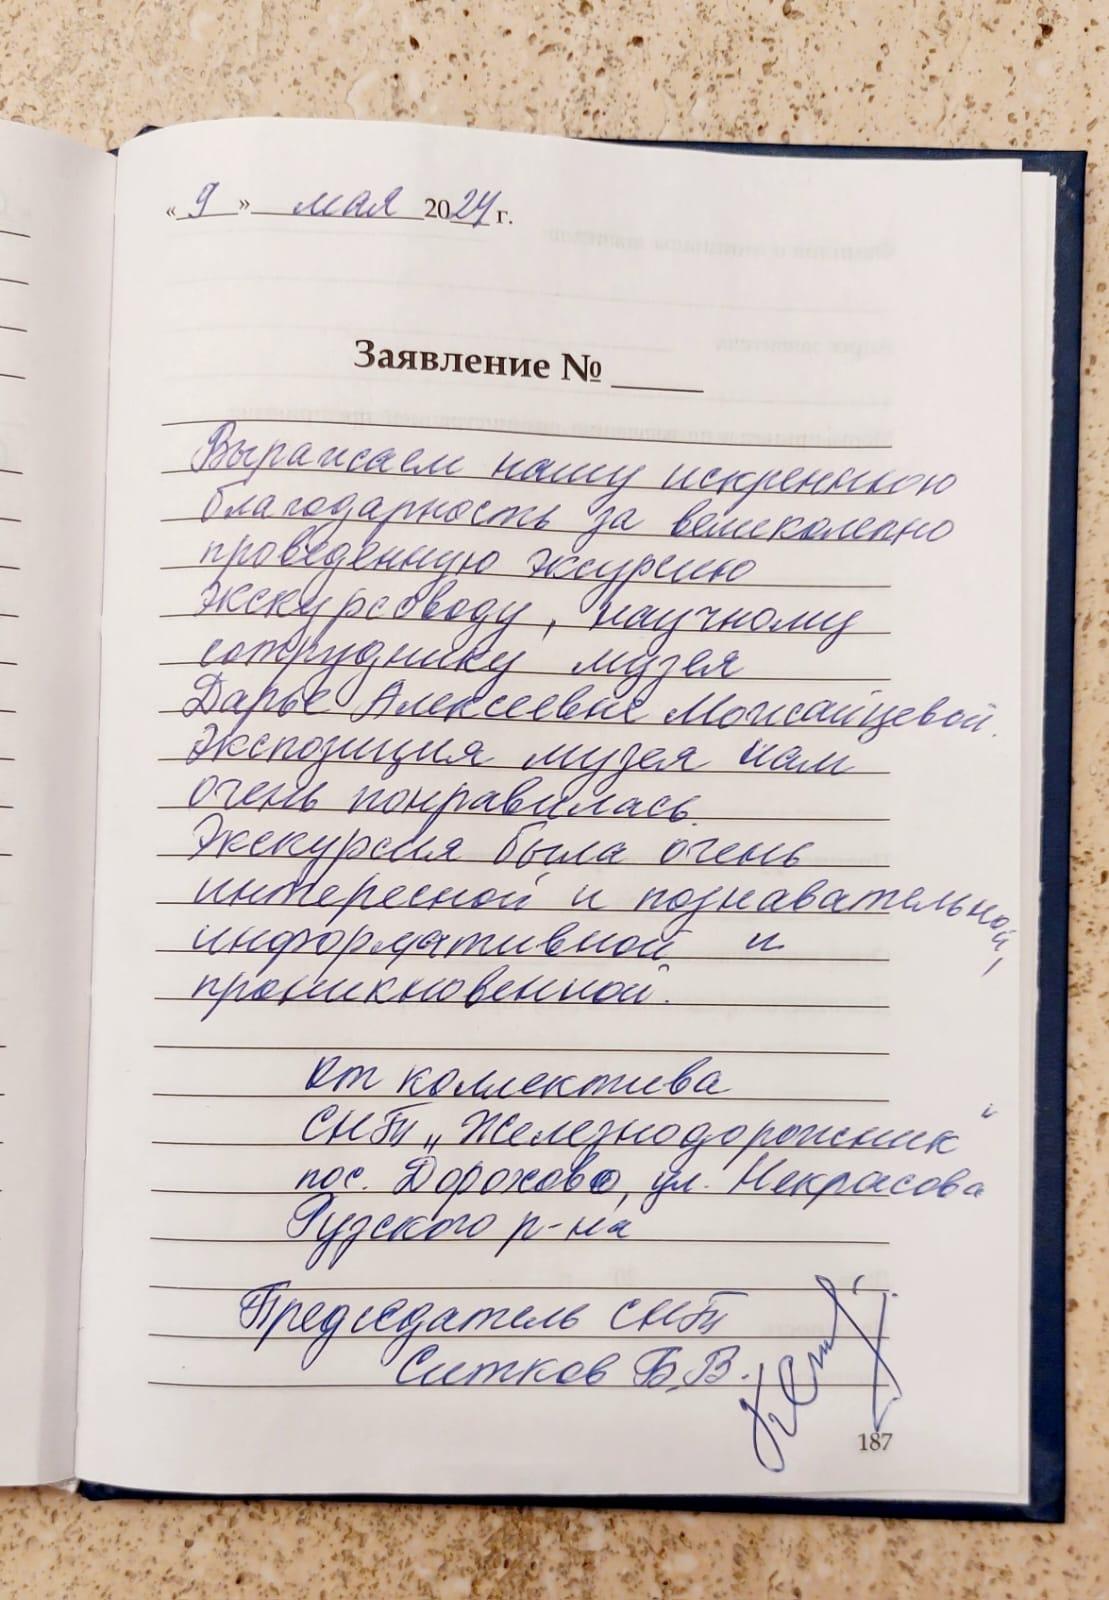 « 9 » мая 2024 г.
Заявление № ____
Выражаем нашу искреннюю
благодарность за великолепно
проведенную экскурсию
экскурсоводу, научному
сотруднику музея
Дарье Алексеевне Можайцевой.
Экспозиция музея нам
очень понравилась.
Экскурсия была очень
интересной и познавательной,
информативной и
проникновенной.
От коллектива
СНТ „Железнодорожник"
пос. Дорохово, ул. Некрасова
Рузского р-на
Председатель СНТ
Ситков Б.В.
187